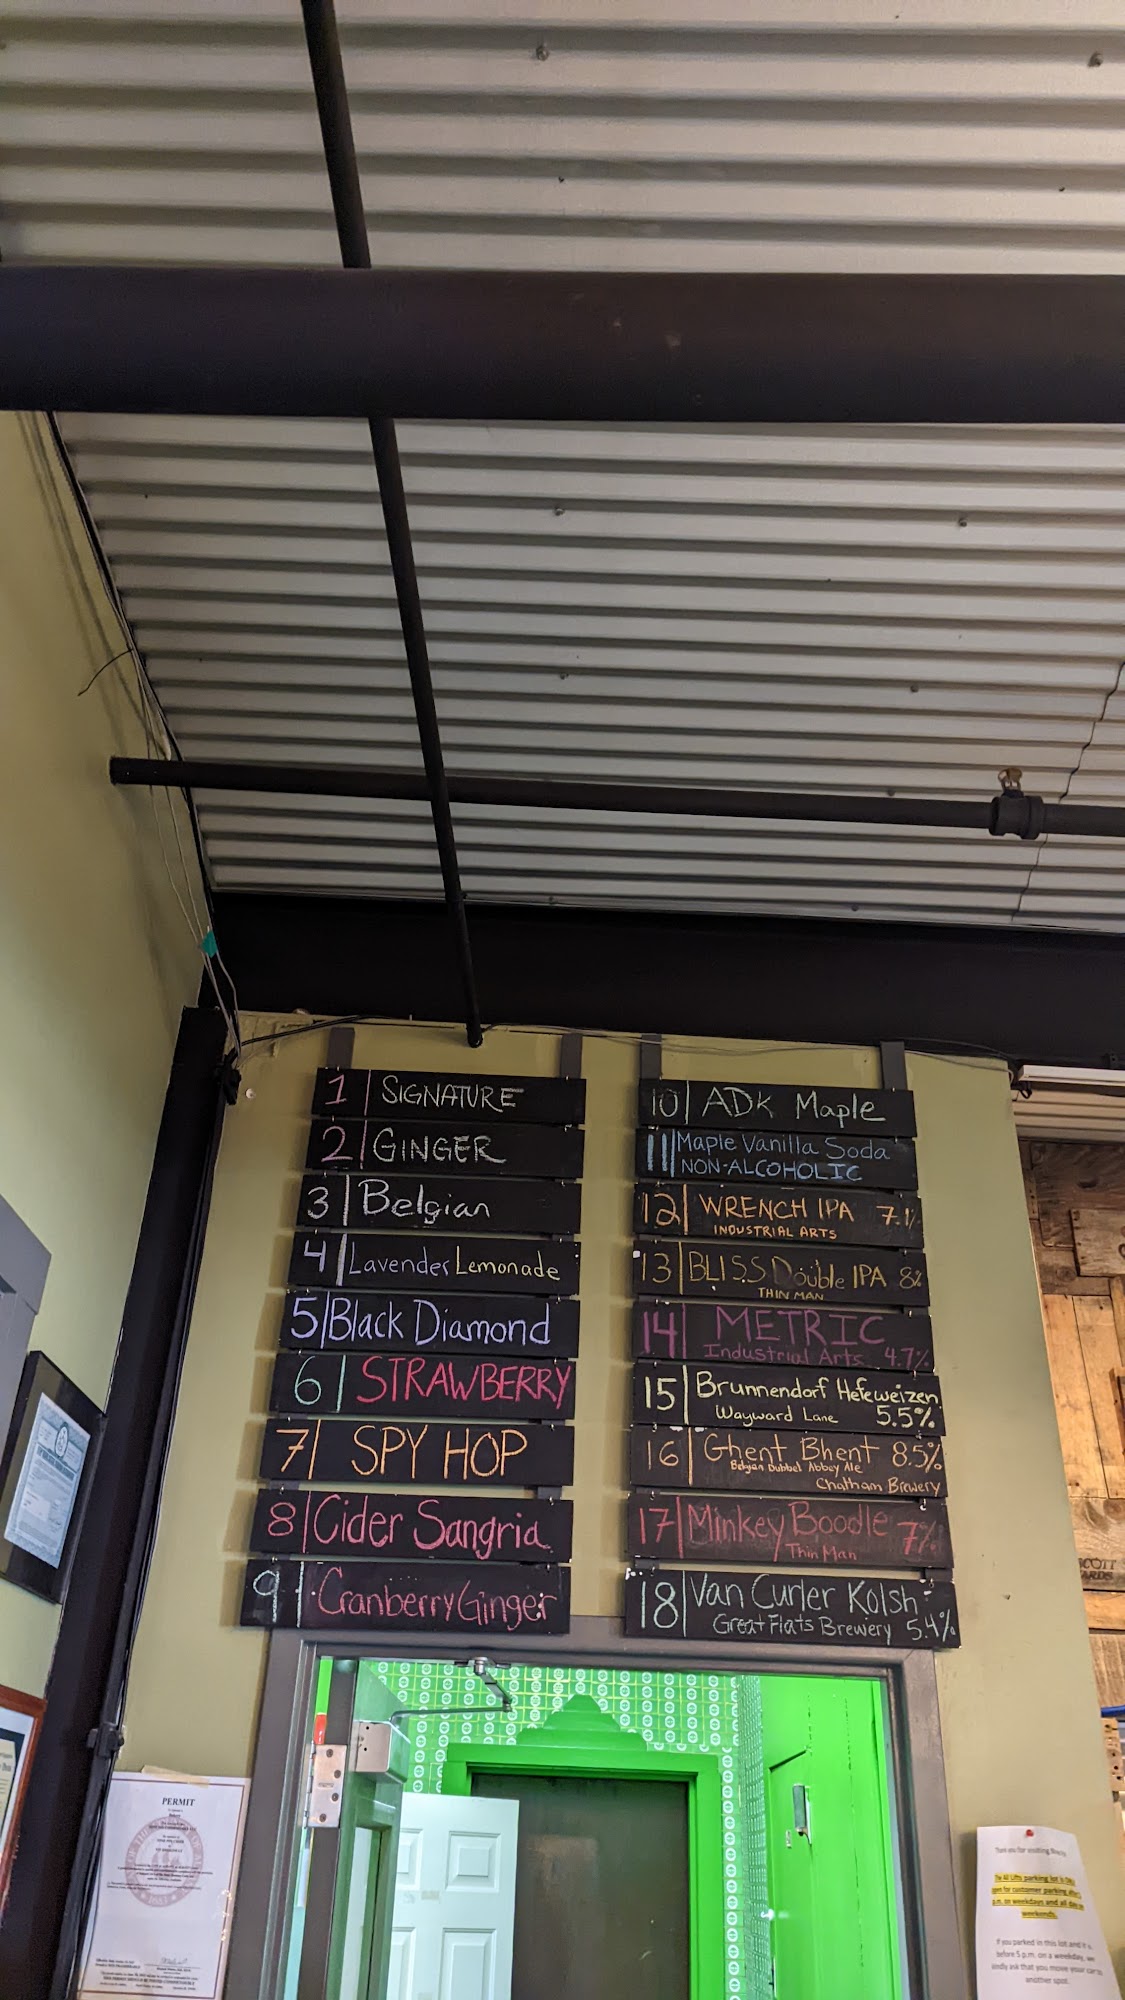 1 SIGNATURE
2 GINGER
3 Belgian
4 Lavender Lemonade
5 Black Diamond
6 STRAWBERRY
7 SPY HOP
8 Cider Sangria
9 Cranberry Ginger
10 ADK Maple
11 Maple Vanilla Soda
NON-ALCOHOLIC
12 WRENCH IPA 7.1%
INDUSTRIAL ARTS
13 BLISS Double IPA 8%
THIN MAN
14 METRIC
Industrial Arts 4.7%
15 Brunnendorf Hefeweizen
Wayward Lane 5.5%
16 Ghent Bhent 8.5%
Belgian Dubbel Abbey Ale
Chatham Brewery
17 Minkey Boodle 7%
Thin Man
18 Van Curler Kolsh
Great Flats Brewery 5.4%
PERMIT
for visiting
parking lot is
for customer parking
on weekdays and all day
weekends.
If you parked in this lot and it is
before 5 p.m. on a weekday, we
kindly ask that you move your car to
another spot.